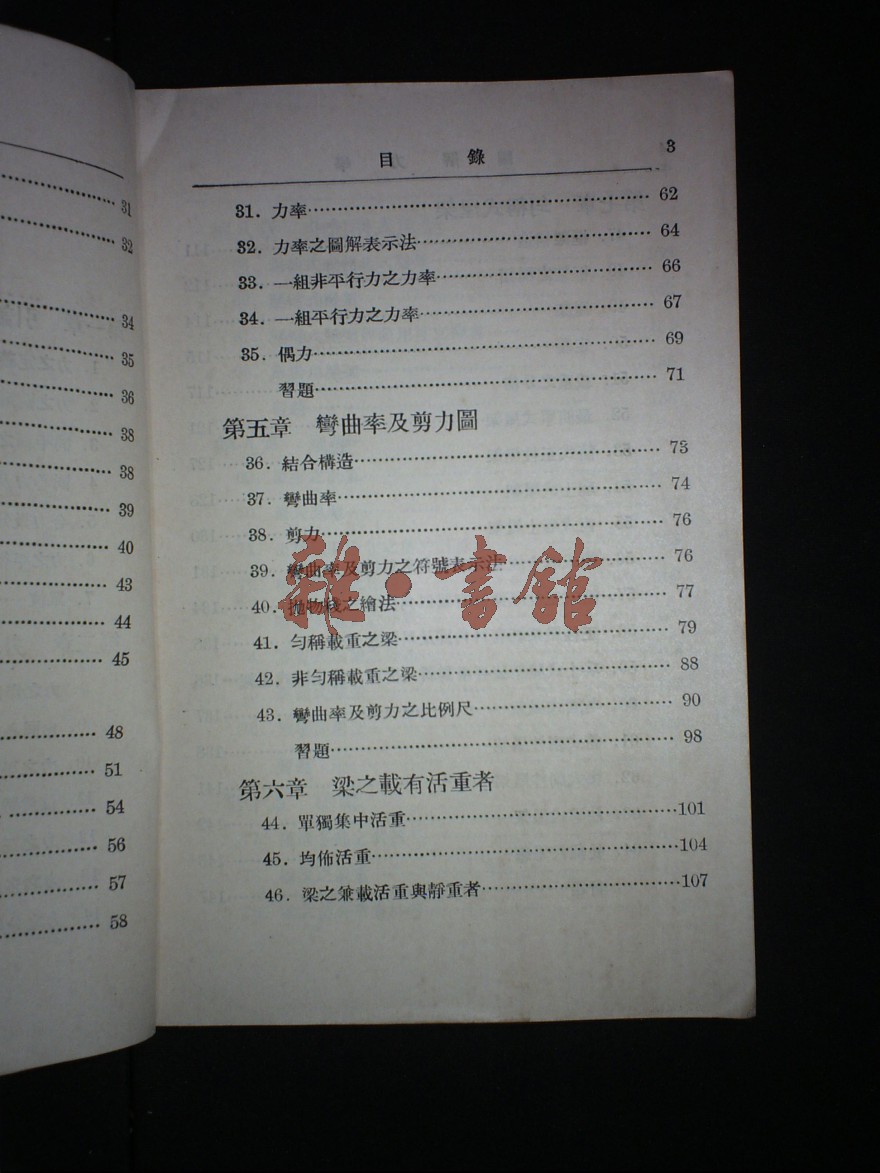 31
32
34
35
36
38
38
39
40
43
44
45
48
51
54
56
57
58
目錄 3
31. 力率 62
32. 力率之圖解表示法 64
33. 一組非平行力之力率 66
34. 一組平行力之力率 67
35. 偶力 69
習題 71
第五章 彎曲率及剪力圖
36. 結合構造 73
37. 彎曲率 74
38. 剪力 76
39. 彎曲率及剪力之符號表示法 76
40. 拋物綫之繪法 77
41. 勻稱載重之梁 79
42. 非勻稱載重之梁 88
43. 彎曲率及剪力之比例尺 90
習題 98
第六章 梁之載有活重者
44. 單獨集中活重 101
45. 均佈活重 104
46. 梁之兼載活重與靜重者 107
雜·書舘